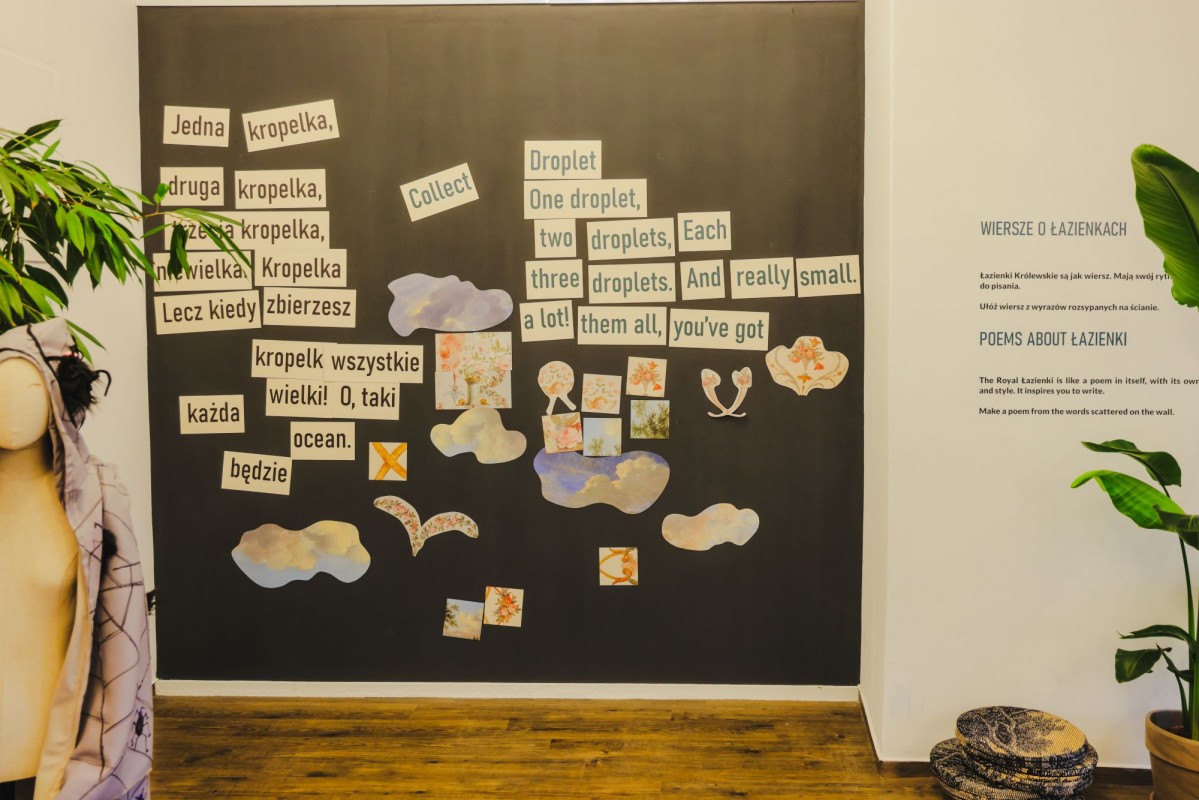 Jedna kropelka,
druga kropelka,
kropelka,
niewielka. Kropelka
Lecz kiedy zbierzesz
kropelk wszystkie
wielki! O, taki
każda
ocean.
będzie
Collect
Droplet
One droplet,
two droplets, Each
three droplets. And really small.
a lot! them all, you've got
WIERSZE O ŁAZIENKACH
Łazienki Królewskie są jak wiersz. Mają swój
do pisania.
Ułóż wiersz z wyrazów rozsypanych na ścianie.
POEMS ABOUT ŁAZIENKI
The Royal Łazienki is like a poem in itself, with its own
and style. It inspires you to write.
Make a poem from the words scattered on the wall.